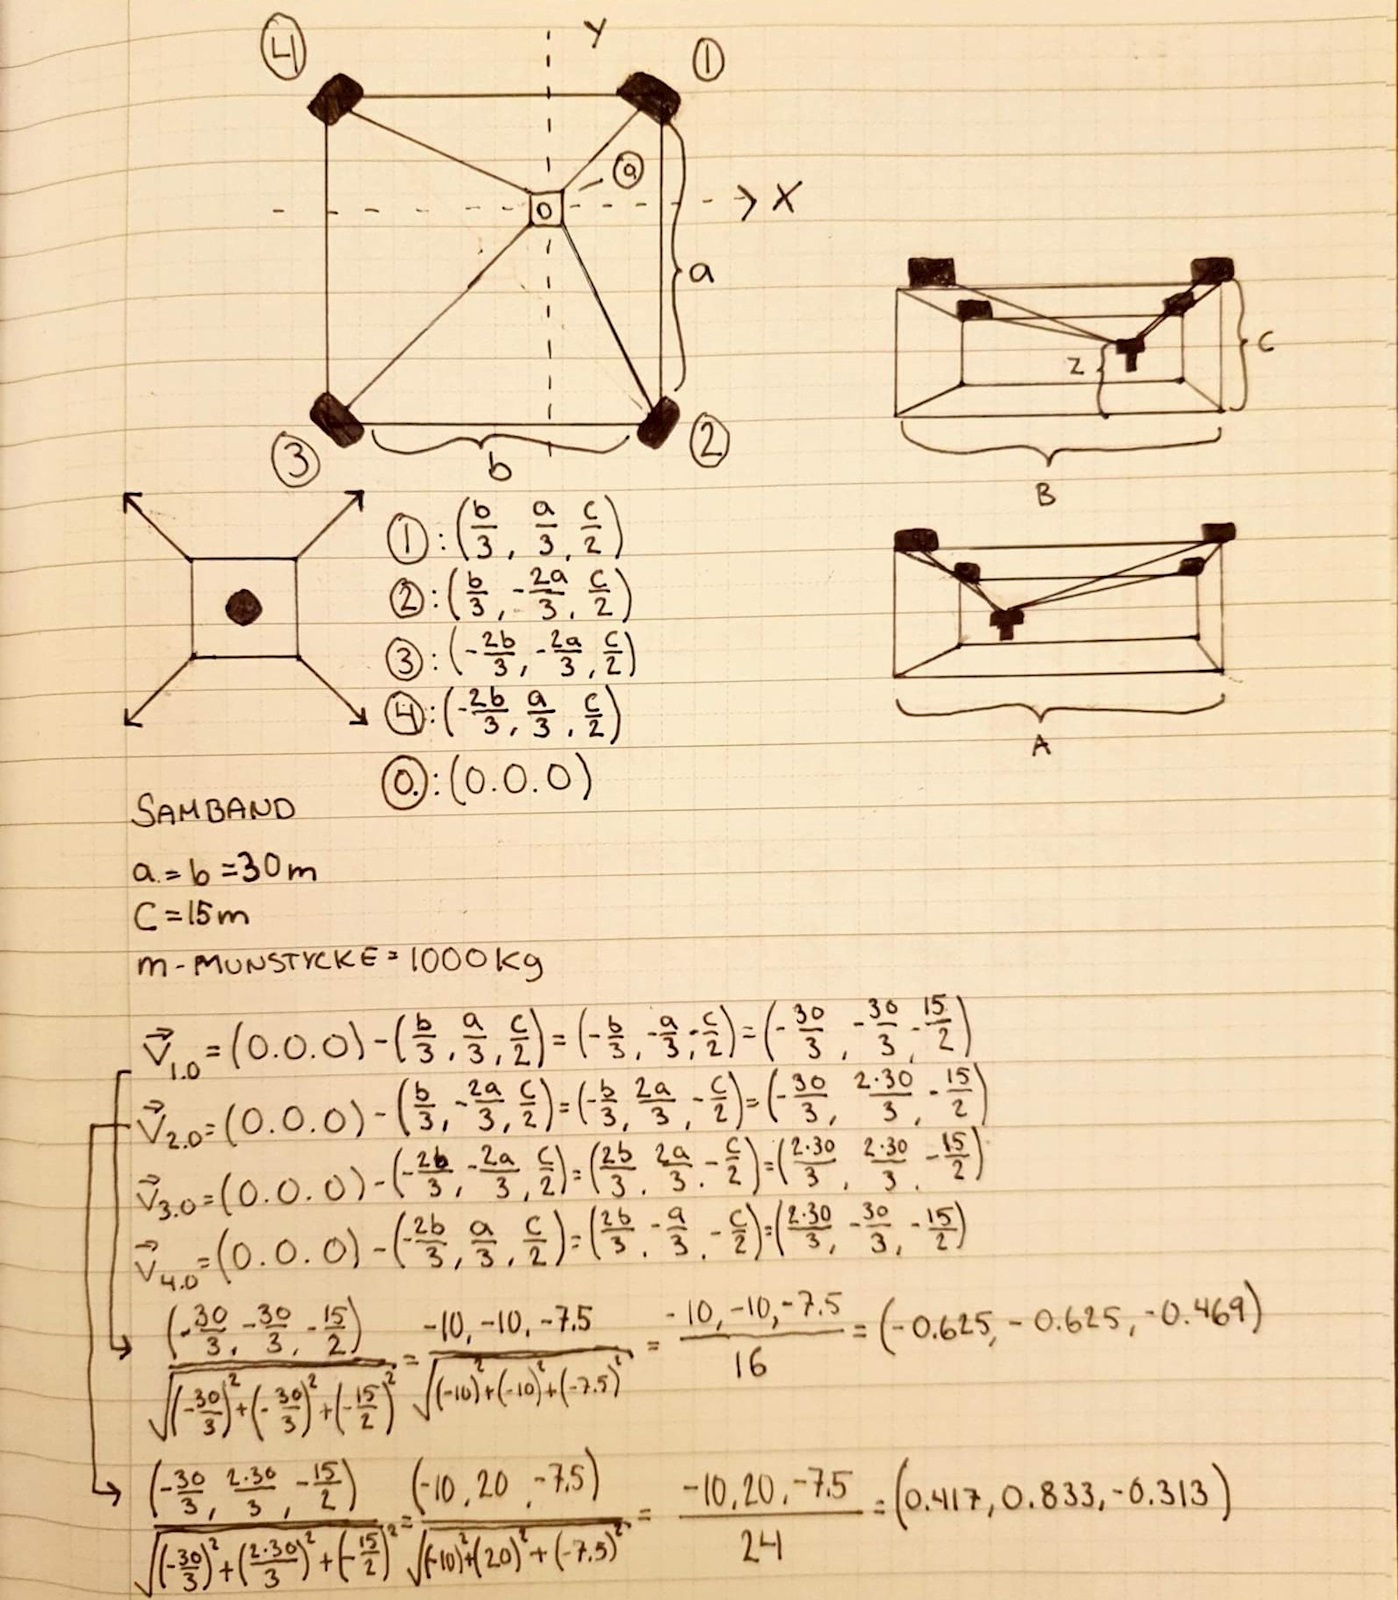 ④ Y ①
ⓐ
0 X
a
③ b ②
z C
B
A
①: (b/3, a/3, c/2)
②: (b/3, -2a/3, c/2)
③: (-2b/3, -2a/3, c/2)
④: (-2b/3, a/3, c/2)
⓪: (0.0.0)
SAMBAND
a = b = 30m
C = 15m
m-MUNSTYCKE = 1000kg
V⃗1.0 = (0.0.0) - (b/3, a/3, c/2) = (-b/3, -a/3, -c/2) = (-30/3, -30/3, -15/2)
V⃗2.0 = (0.0.0) - (b/3, -2a/3, c/2) = (-b/3, 2a/3, -c/2) = (-30/3, 2·30/3, -15/2)
V⃗3.0 = (0.0.0) - (-2b/3, -2a/3, c/2) = (2b/3, 2a/3, -c/2) = (2·30/3, 2·30/3, -15/2)
V⃗4.0 = (0.0.0) - (-2b/3, a/3, c/2) = (2b/3, -a/3, -c/2) = (2·30/3, -30/3, -15/2)
(-30/3, -30/3, -15/2) / √((-30/3)² + (-30/3)² + (-15/2)²) = -10, -10, -7.5 / √((-10)² + (-10)² + (-7.5)²) = -10, -10, -7.5 / 16 = (-0.625, -0.625, -0.469)
(-30/3, 2·30/3, -15/2) / √((-30/3)² + (2·30/3)² + (-15/2)²) = (-10, 20, -7.5) / √((-10)² + (20)² + (-7.5)²) = -10, 20, -7.5 / 24 = (0.417, 0.833, -0.313)